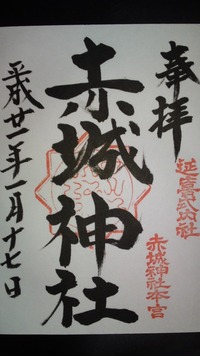 奉拝
延喜式内社
赤城神社本宮
赤城神社
平成廿一年一月十七日